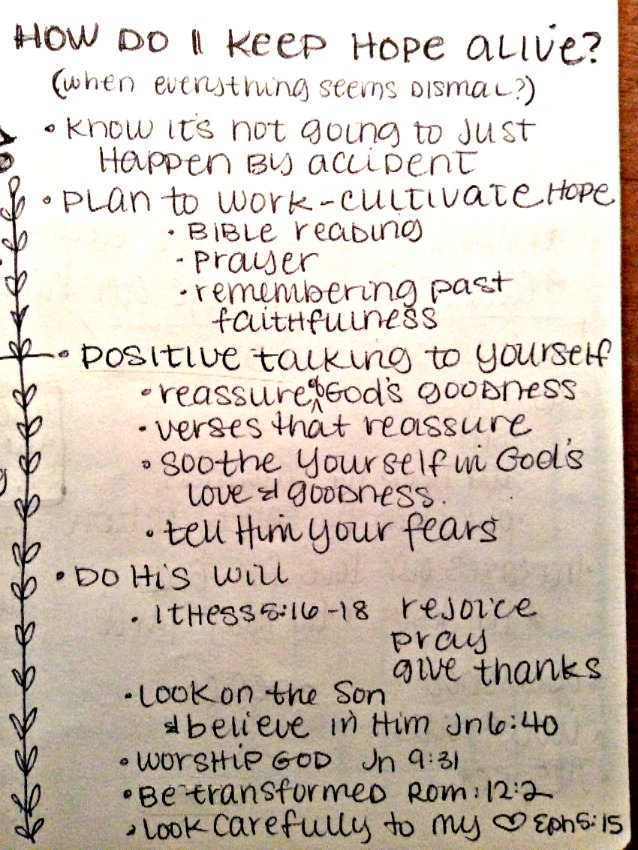 HOW DO I KEEP HOPE ALIVE?
(when everything seems DISMAL?)
• KNOW IT'S not going to Just
HAPPEN BY accident
• PLAN to WORK - CULTIVATE HOPE
• BIBLE reading
• prayer
• remembering past
faithfulness
• POSITIVE talking to yourself
• reassure of God's goodness
• verses that reassure
• soothe yourself in God's
Love & goodness.
• tell Him your fears
• DO His will
• 1THess 5:16-18 rejoice
pray
give thanks
• LOOK on the Son
& believe in Him Jn 6:40
• WORSHIP GOD Jn 9:31
• Be transformed Rom: 12:2
• LOOK carefully to my ♡ Eph 5:15